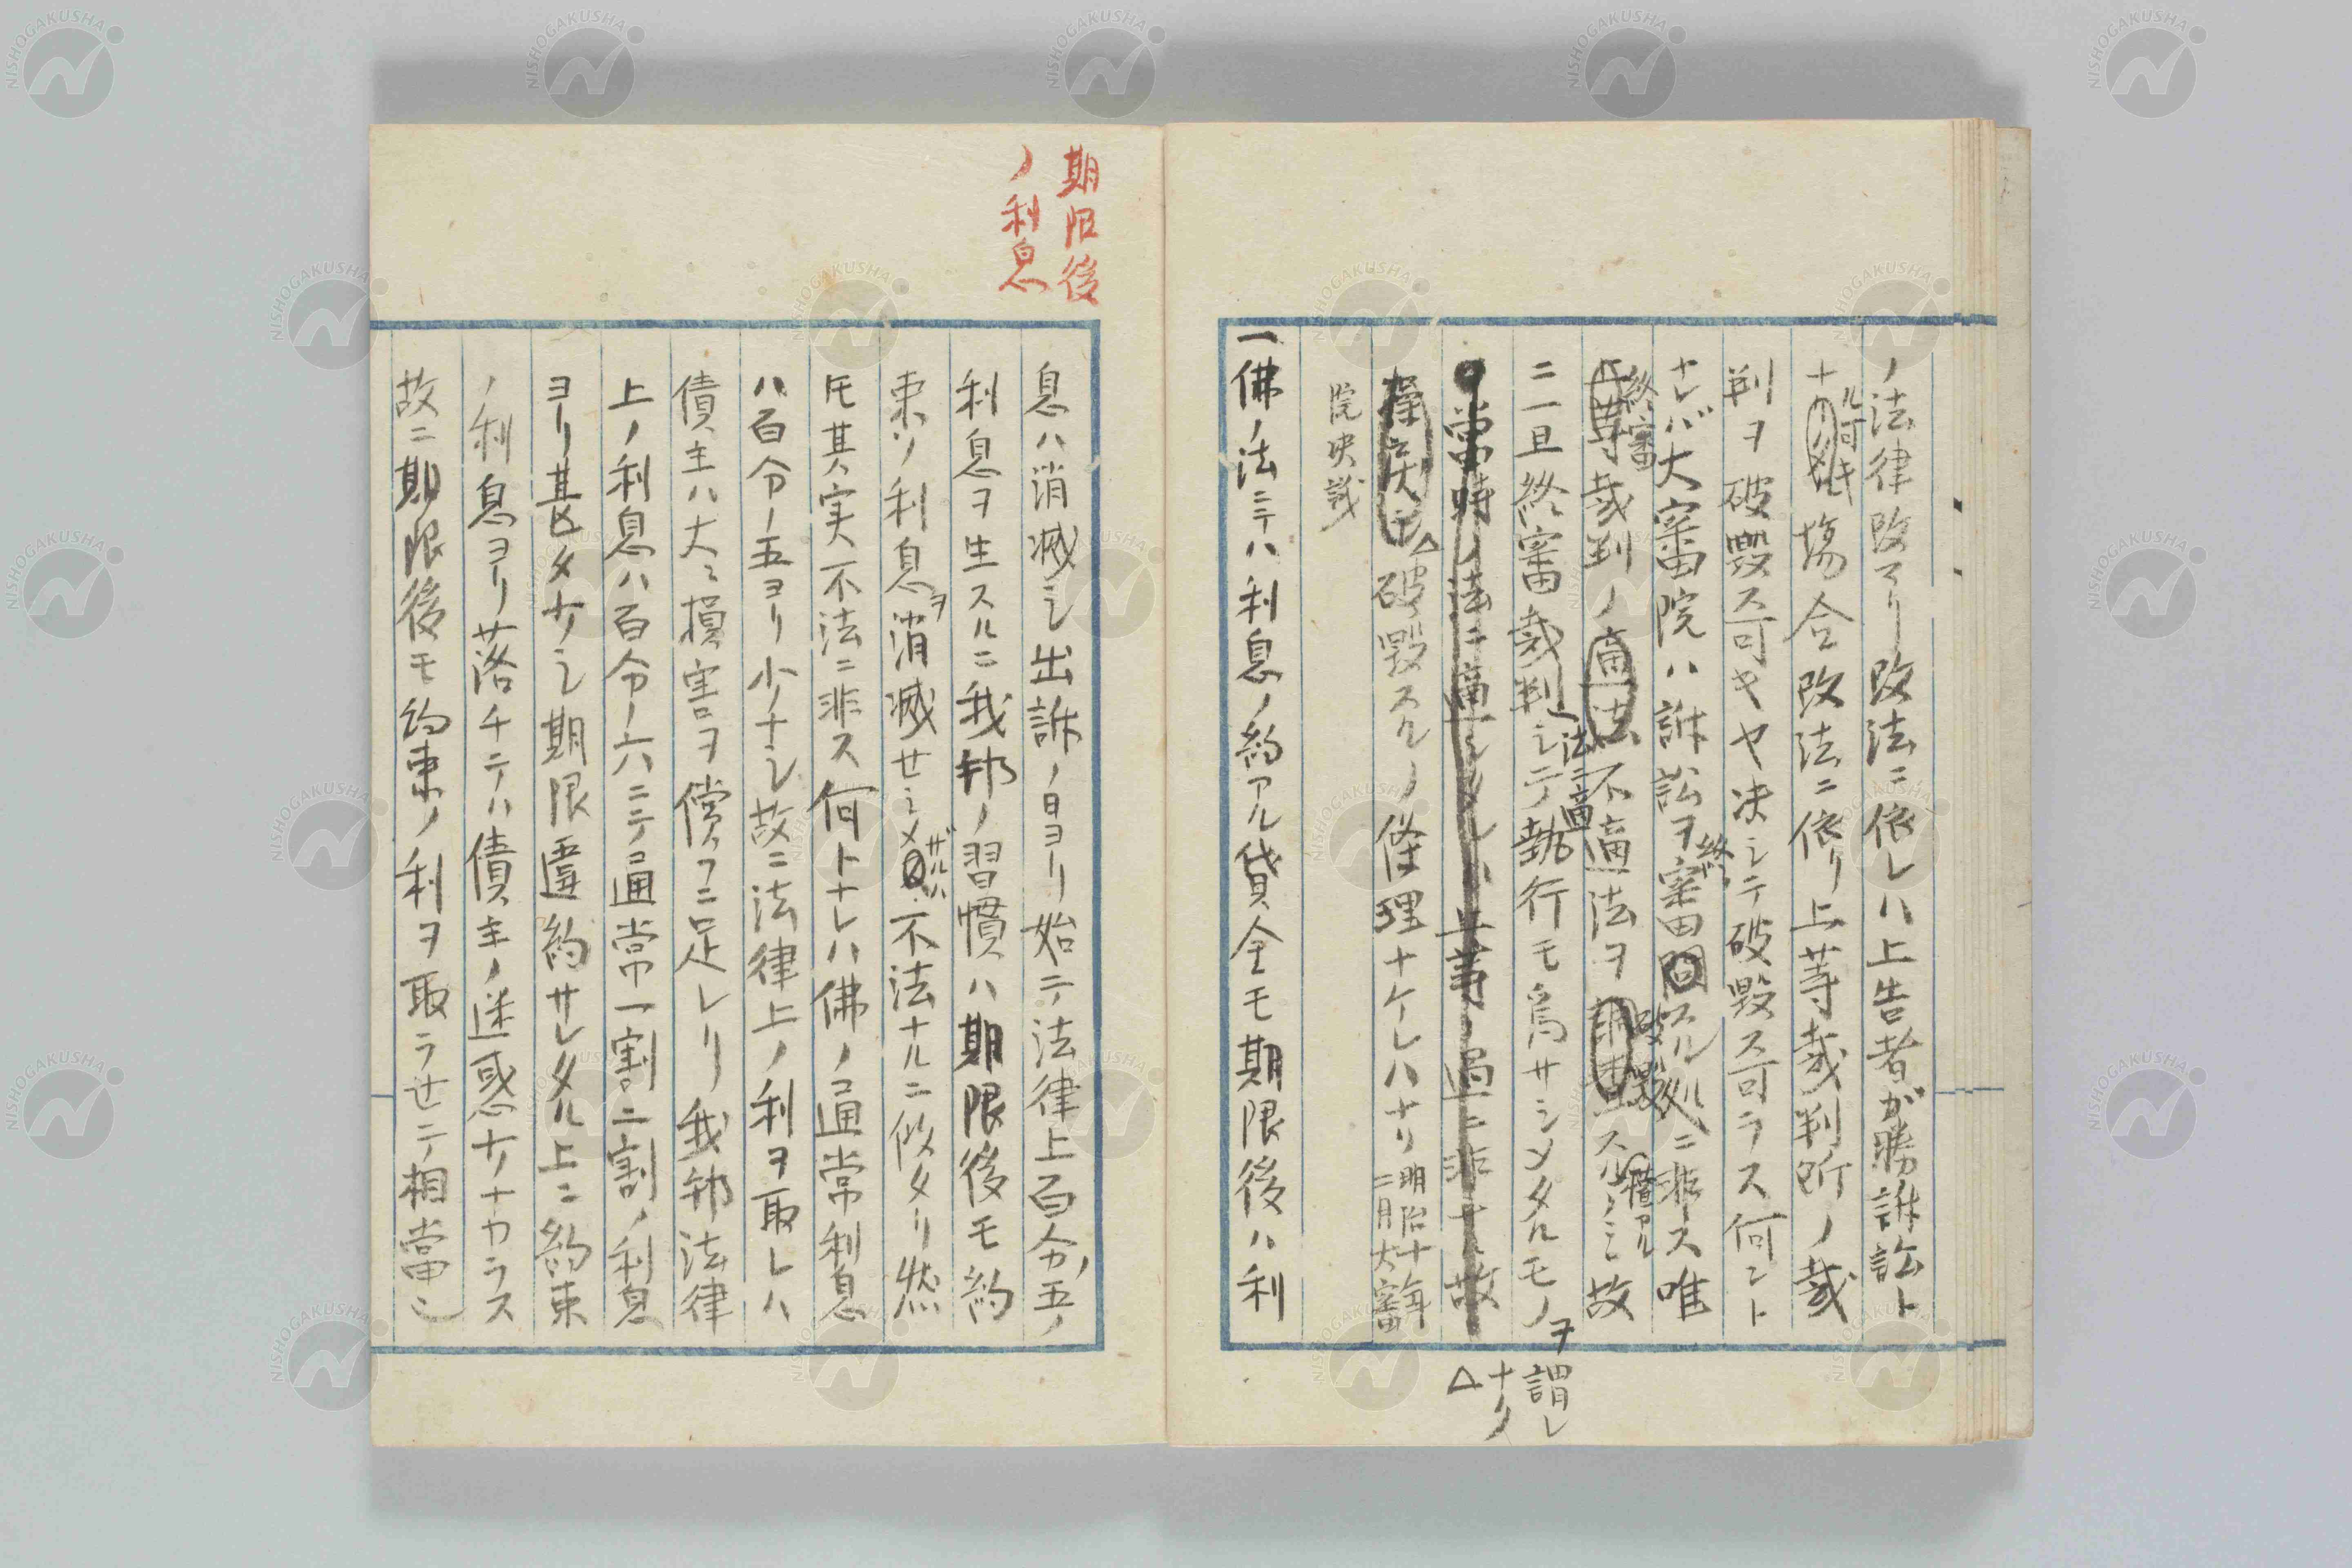 ノ法律改マリ改法ニ依レハ上告者ガ勝訴訟ト
ナル可キ塲合改法ニ依リ上等裁判所ノ裁
判ヲ破毀ス可キヤ决シテ破毀ス可ラス何ント
ナレバ大審院ハ訴訟ヲ終審スル処ニ非ス唯
終審裁判ノ不適法ヲ破毀スルノミ故
ニ一旦終審裁判シテ執行モ為サシメタルモノヲ謂レ
法ニ適
當時ノ法ニ適
ナリ
破毀スルノ條理ナケレハナリ
明治十年
二月大審
院决議
一佛ノ法ニテハ利息ノ約アル貸金モ期限後ハ利
期限後
ノ利息
息ハ消滅シ出訴ノ日ヨリ始テ法律上百分ノ五ノ
利息ヲ生スルニ我邦ノ習慣ハ期限後モ約
束ノ利息ヲ消滅せシメザルハ不法ナルニ似タリ然
トモ其実不法ニ非ス何トナレハ佛ノ通常利息
ハ百分ノ五ヨリ少ナシ故ニ法律上ノ利ヲ取レハ
債主ハ大ニ損害ヲ償フニ足レリ我邦法律
上ノ利息ハ百分ノ六ニテ通常一割二割ノ利息
ヨリ甚タ少シ期限違約サレタル上ニ約束
ノ利息ヨリ落チテハ債主ノ迷惑少ナカラス
故ニ期限後モ約束ノ利ヲ取ラせテ相當ニ
NISHOGAKUSHA